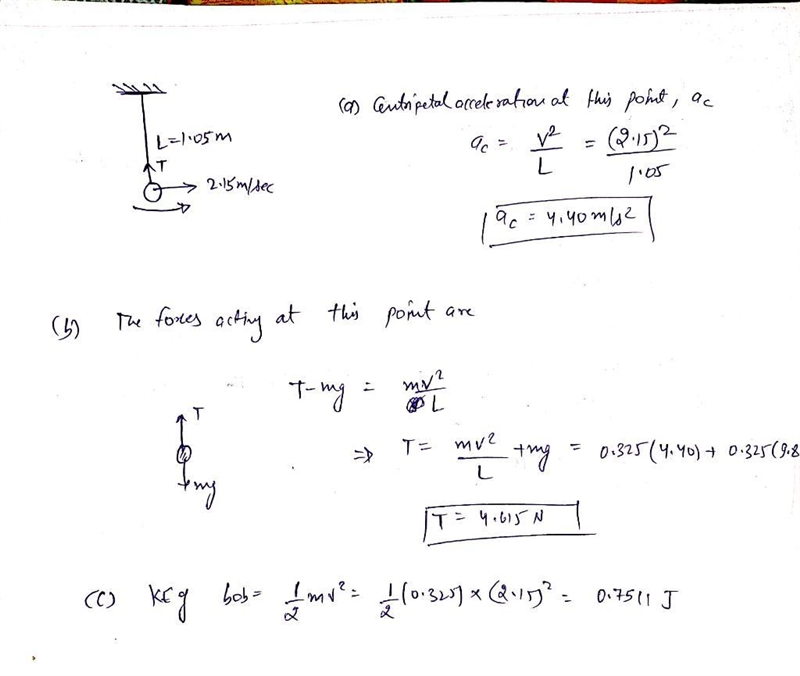 (a) Centripetal acceleration at this point, ac
L=1.05m
ac = v²/L = (2.15)²/1.05
T
2.15m/sec
ac = 4.40 m/s2
(b) The forces acting at this point are
T-mg = mv²/L
T
⇒ T = mv²/L +mg = 0.325(4.40)+ 0.325(9.8
mg
T = 4.615 N
(c) KE of bob = 1/2 mv² = 1/2 (0.325) x (2.15)² = 0.7511 J